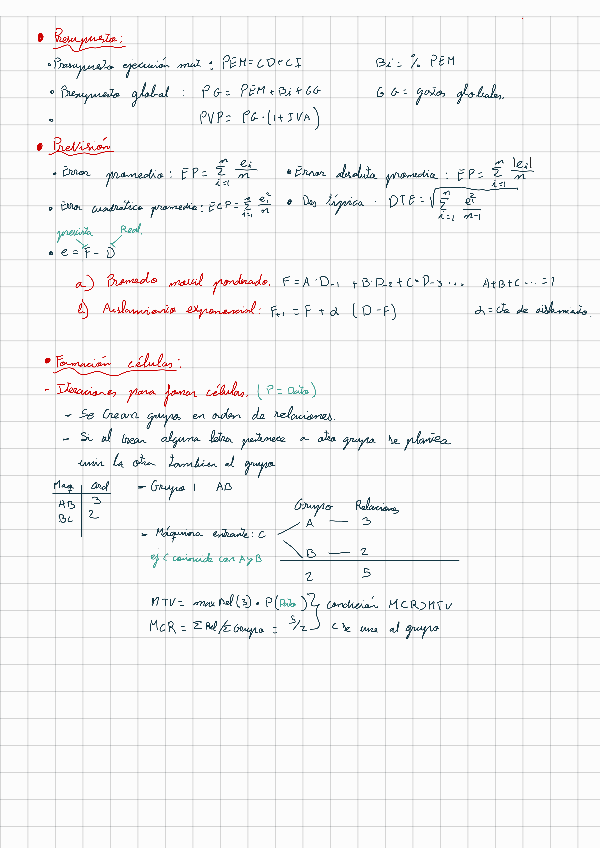 • Presupuesto:
• Presupuesto ejecución mat : PEM = CD + CI Bi = % PEM
• Presupuesto global : PG = PEM + Bi + GG GG = gastos globales.
• PVP = PG · (1 + IVA)
• Previsión
• Error promedio : EP = Σ_{i=1}^{n} e_i/n • Error absoluto promedio : EP = Σ_{i=1}^{n} |e_i|/n
• Error cuadrático promedio : ECP = Σ_{i=1}^{n} e_i²/n • Des típica · DTE = √(Σ_{i=1}^{n} e_i²/(n-1))
prevista Real.
• e = F - D
a) Promedio movil ponderado. F = A·D-1 + B·D-2 + C·D-3 ... A+B+C ... = 1
b) Aislamiento exponencial : F+1 = F + α (D - F) α = cte de aislamiento.
• Formación células :
- Iteraciones para formar células. (P = Dato)
- Se crean grupos en orden de relaciones.
- Si al crear alguna letra pertenece a otro grupo se plantea
unir la otra tambien al grupo
Maq Ord - Grupo 1 AB
AB 3
BC 2
Grupo Relaciones
A — 3
- Máquina entrante : C
B — 2
ej C coincide con A y B
2 5
MTV = max Rel (3) · P (Dato) } condición MCR > MTV
MCR = Σ Rel / Σ Grupo = 5/2 } C se une al grupo